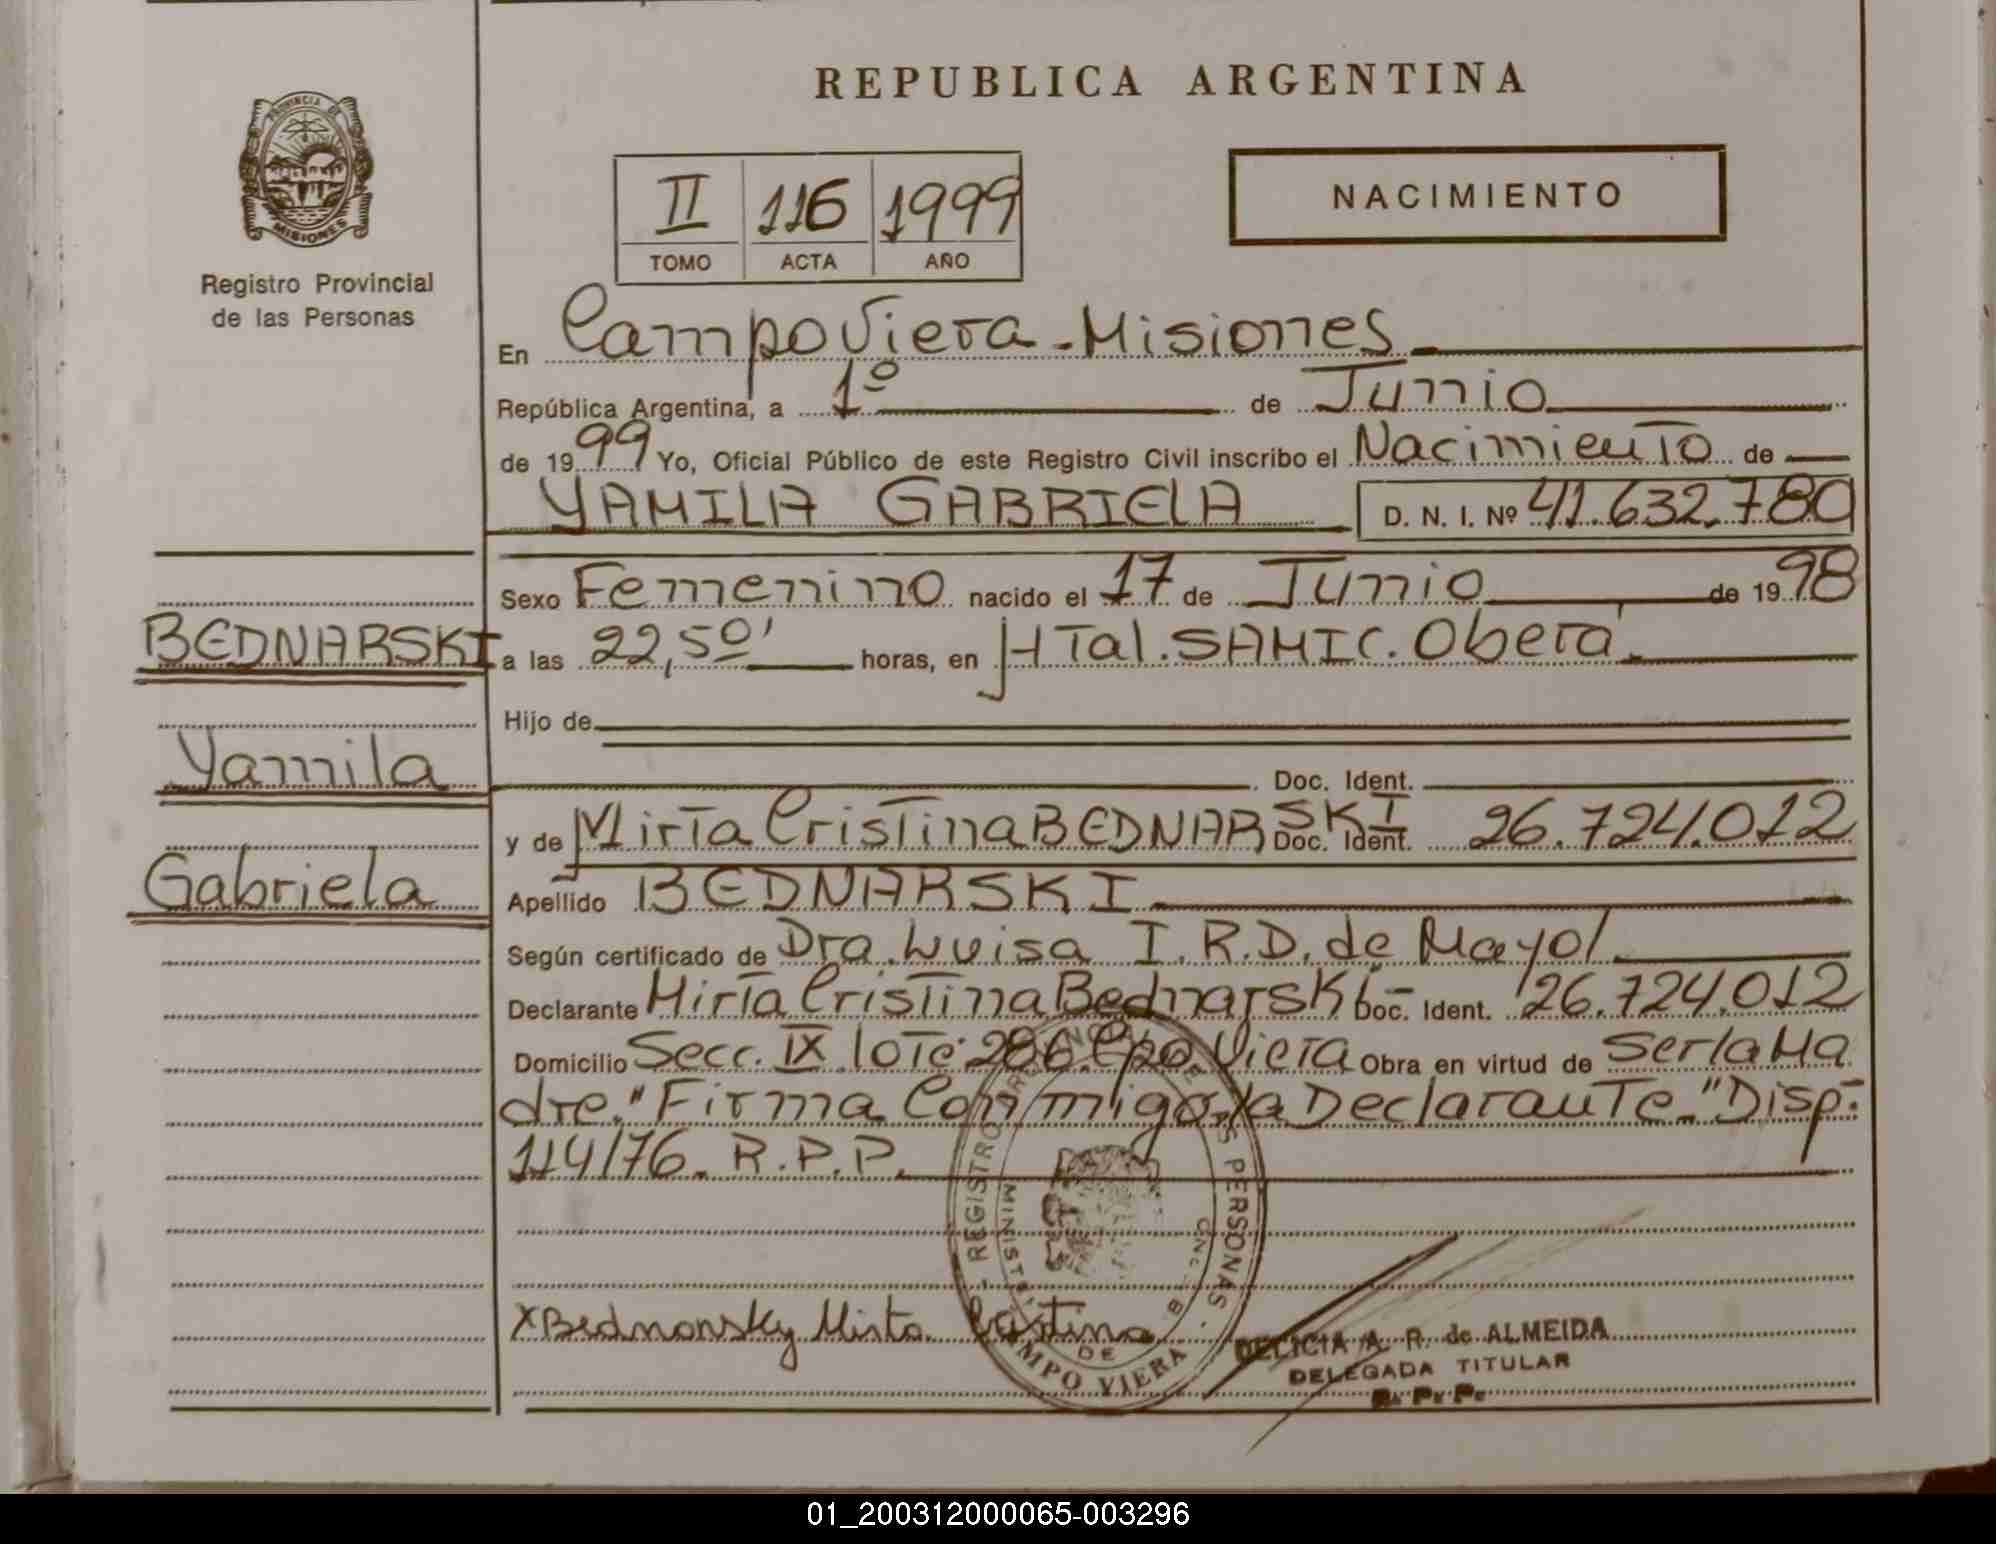 REPUBLICA ARGENTINA
PROVINCIA DE
MISIONES
Registro Provincial
de las Personas
II 116 1999
TOMO ACTA AÑO
NACIMIENTO
En Campo Viera - Misiones
República Argentina, a 1º de Junio
de 1999 Yo, Oficial Público de este Registro Civil inscribo el Nacimiento de
YAMILA GABRIELA D. N. I. Nº 41.632.780
Sexo Femenino nacido el 17 de Junio de 1998
BEDNARSKI
a las 22,50' horas, en Htal. SAMIC. Oberá.
Hijo de
Yamila
Doc. Ident.
y de Mirta Cristina BEDNARSKI Doc. Ident. 26.724.012
Gabriela
Apellido BEDNARSKI
Según certificado de Dra. Luisa I. R. D. de Mayol
Declarante Mirta Cristina Bednarski - Doc. Ident. 26.724.012
Domicilio Secc. IX lote 286. Cpo Viera Obra en virtud de Ser la Ma
dre. "Firma Conmigo, la Declarante." Disp.
114/76. R.P.P.
REGISTRO PERSONAS
CAMPO VIERA
X Bednonsky Mirta Cristina
DELICIA A. R. de ALMEIDA
DELEGADA TITULAR
R. P. P.
01_200312000065-003296